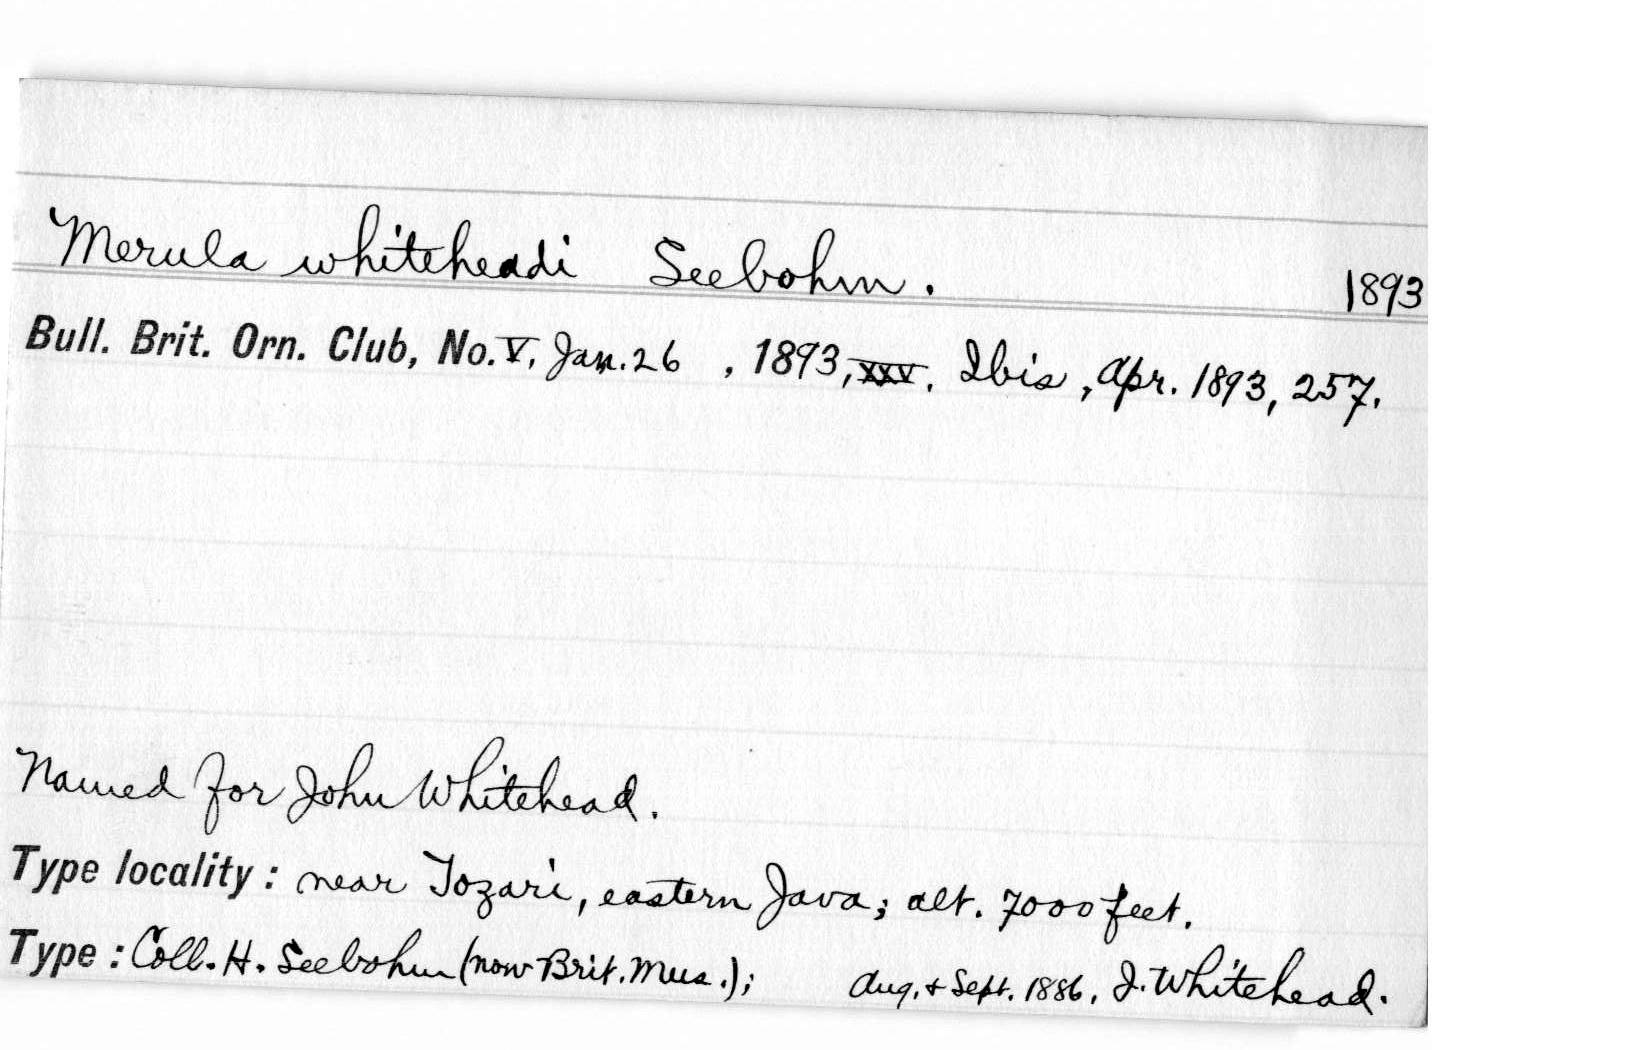 Merula whiteheadi Seebohm. 1893
Bull. Brit. Orn. Club, No. V, Jan. 26 , 1893, XXV. Ibis, Apr. 1893, 257.
Named for John Whitehead.
Type locality: near Tozari, eastern Java; alt. 7000 feet.
Type: Coll. H. Seebohm (now Brit. Mus.); Aug. & Sept. 1886, J. Whitehead.